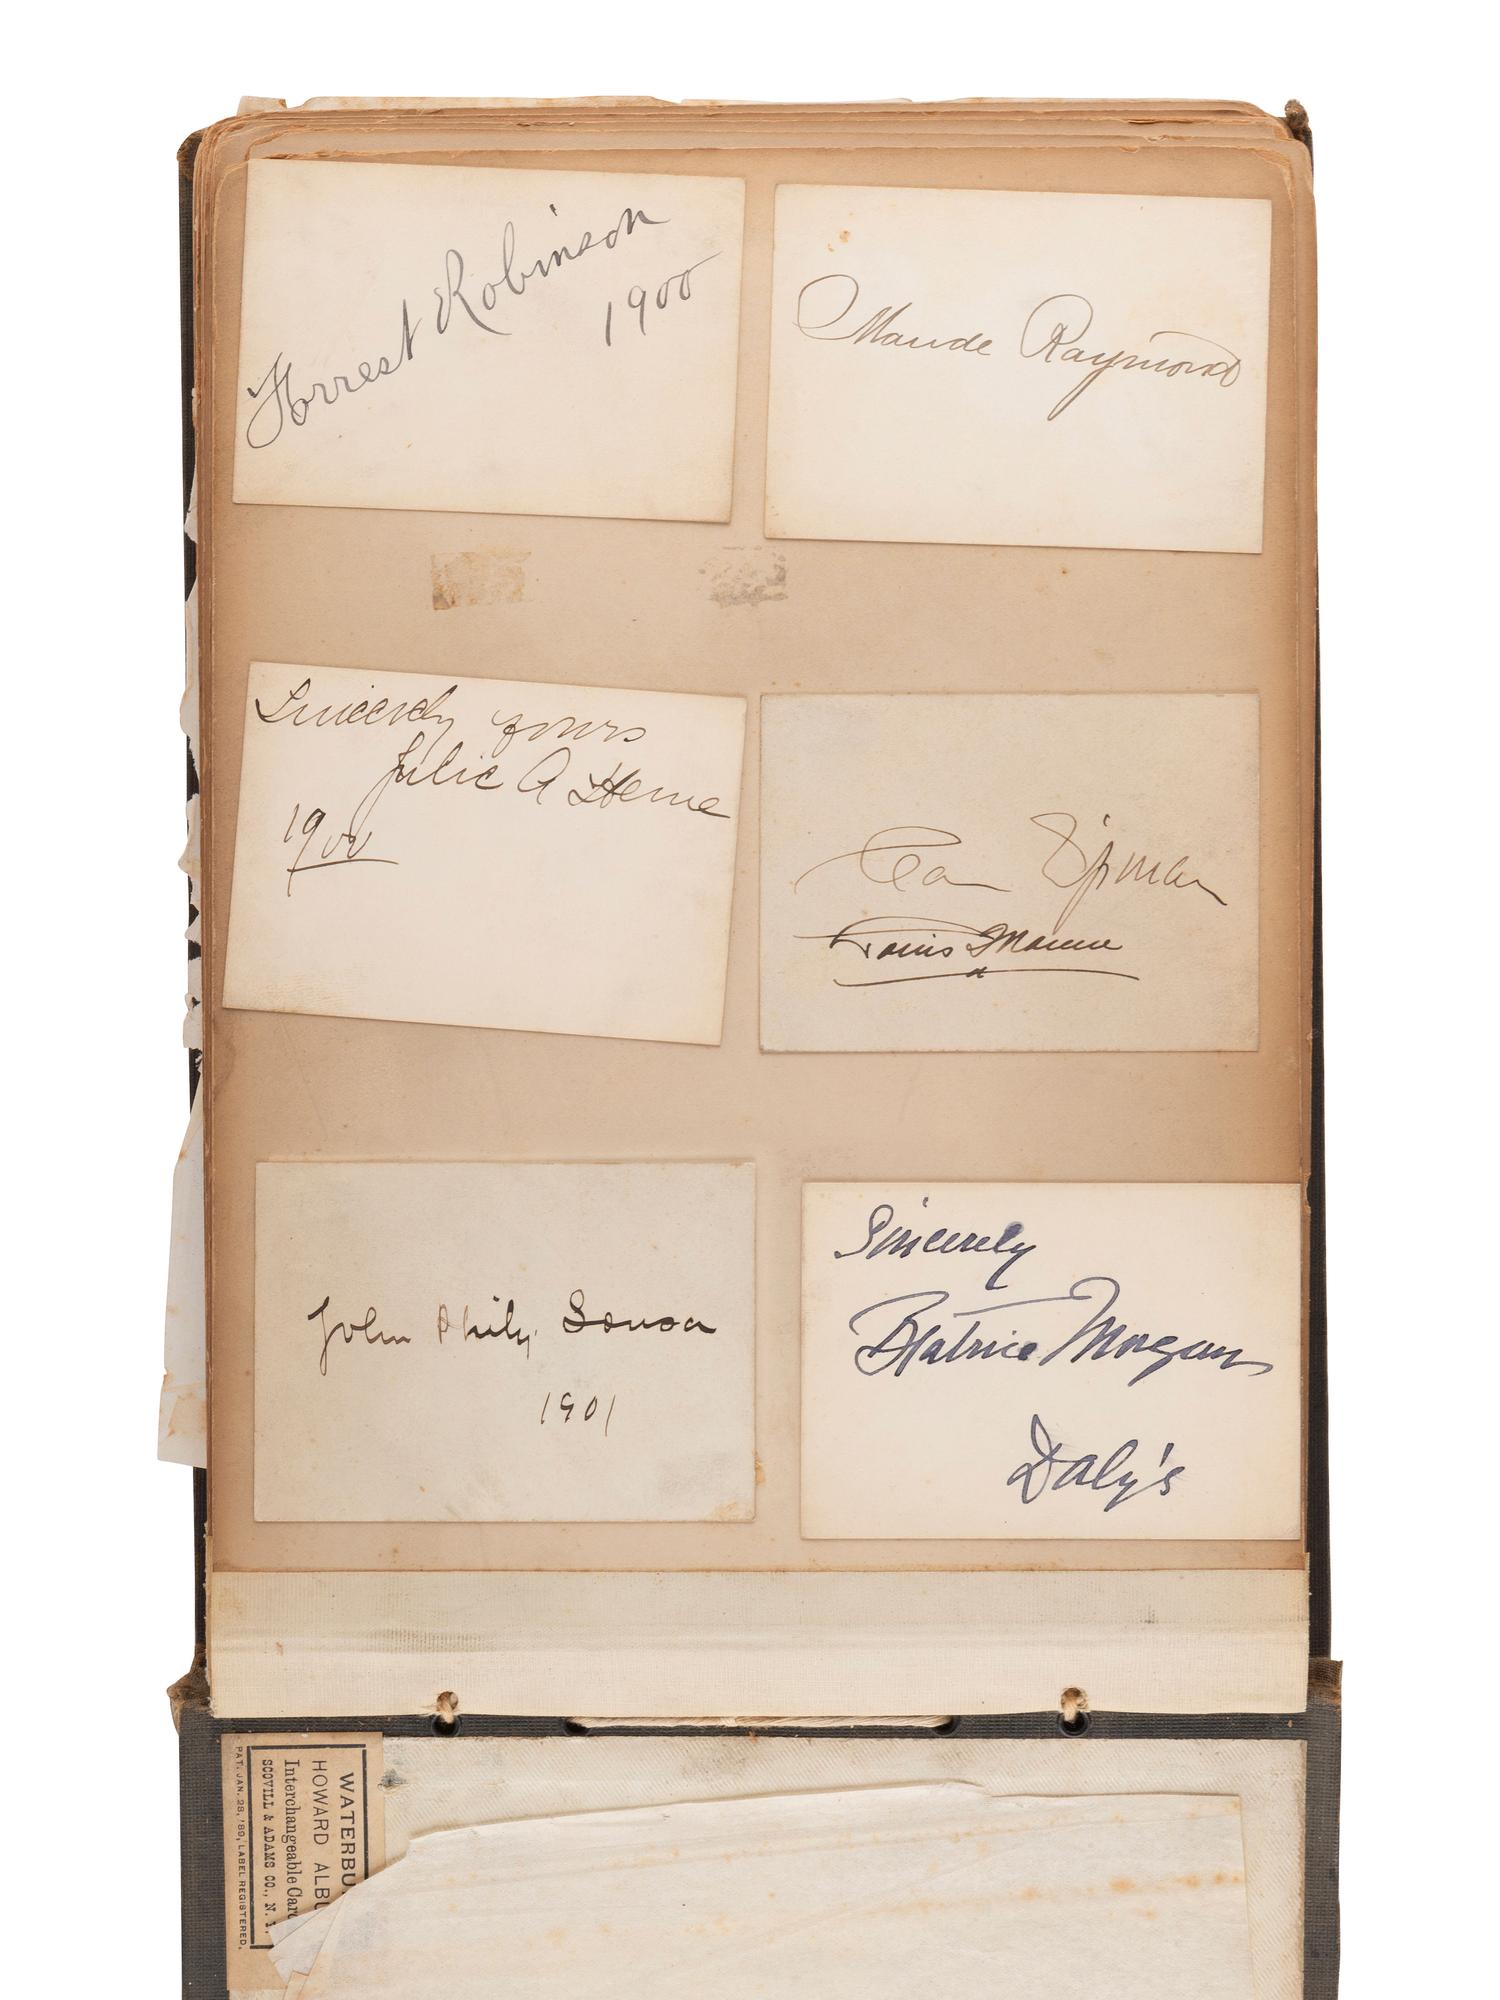 Forrest Robinson
1900
Maude Raymond
Sincerely yours
Julie A Herne
1900
Clara Lipman
Louis Mann
John Philip Sousa
1901
Sincerely
Beatrice Morgan
Daly's
WATERBU
HOWARD ALBU
Interchangeable Car
SCOVILL & ADAMS CO., N. Y.
PAT. JAN. 28, '89, LABEL REGISTERED.